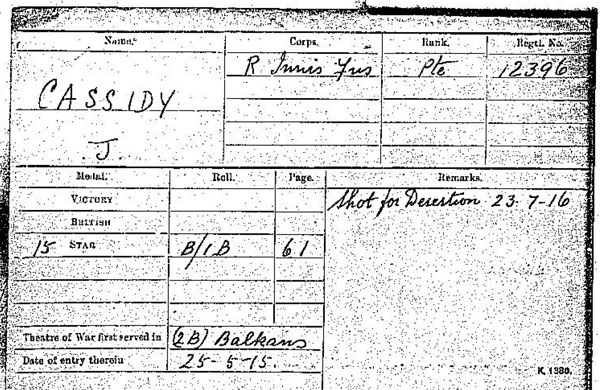 Name. Corps. Rank. Regtl. No.
CASSIDY R Innis Fus Pte 12396
J.
Medal. Roll. Page. Remarks.
VICTORY Shot for Desertion 23-7-16
BRITISH
15 STAR B/1B 61
Theatre of War first served in (2B) Balkans
Date of entry therein 25-5-15.
K. 1380.